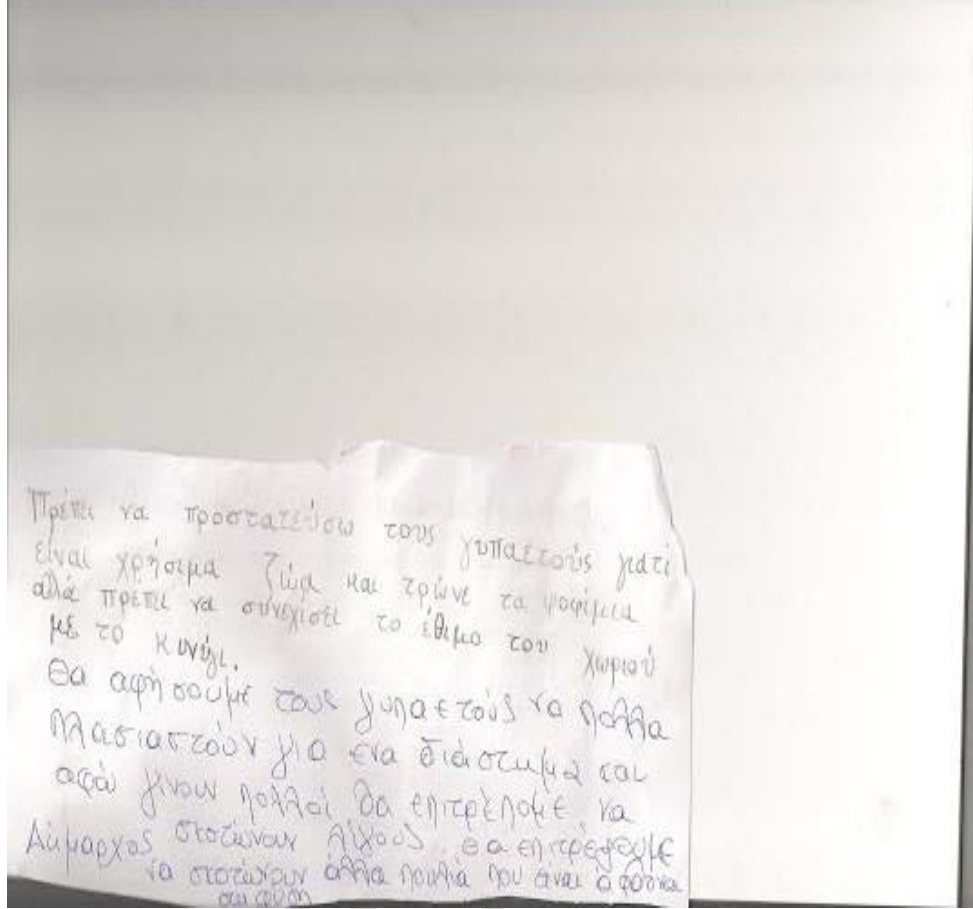 Πρέπει να προστατεύσω τους γυπαετούς γιατί
είναι χρήσιμα ζώα και τρώνε τα ψοφίμια
αλά πρέπει να συνεχίσει το έθιμο του χωριού
με το κυνήγι.
Θα αφήσουμε τους γυπαετούς να πολλα
πλασιαστούν για ένα διάστημα και
αφού γίνουν πολλοί θα επιτρέπομε να
Δήμαρχος σκοτώνουν λίγους. θα επιτρέψουμε
να σκοτώνουν άλλα πουλιά που είναι άφθονα
στη φύση